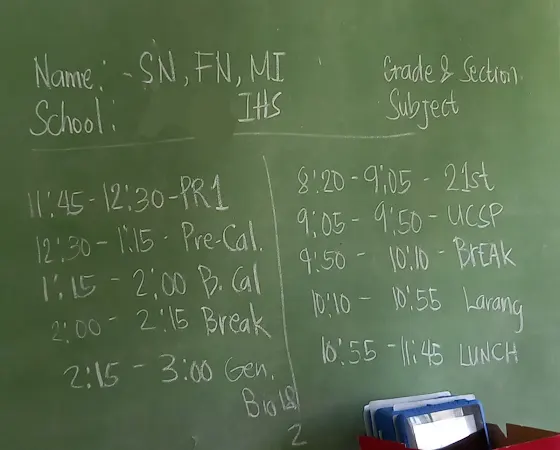 Name: - SN, FN, MI
Grade & Section
School: IHS
Subject
11:45 - 12:30 - PR1
12:30 - 1:15 - Pre-Cal.
1:15 - 2:00 B. Cal
2:00 - 2:15 Break
2:15 - 3:00 Gen.
Bio 1&
2
8:20 - 9:05 - 21st
9:05 - 9:50 - UCSP
9:50 - 10:10 - BREAK
10:10 - 10:55 Larang
10:55 - 11:45 LUNCH